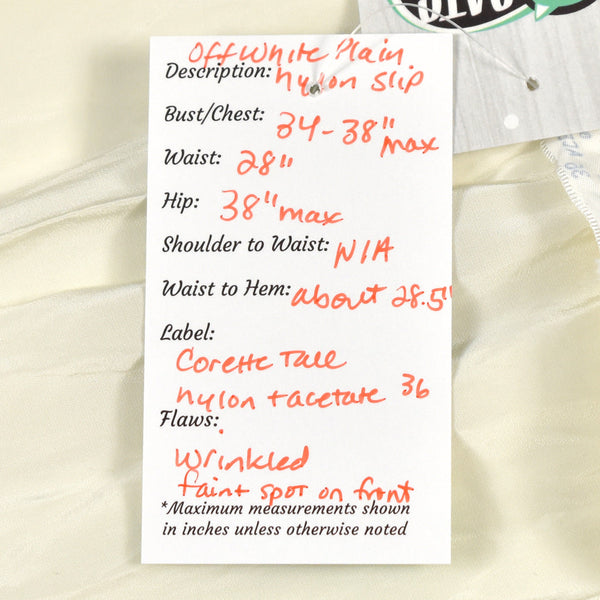 Off White Plain
Description: nylon slip
Bust/Chest: 34-38" max
Waist: 28"
Hip: 38" max
Shoulder to Waist: N/A
Waist to Hem: about 28.5"
Label:
Corette Tall
nylon + acetate 36
Flaws:
Wrinkled
faint spot on front
*Maximum measurements shown
in inches unless otherwise noted